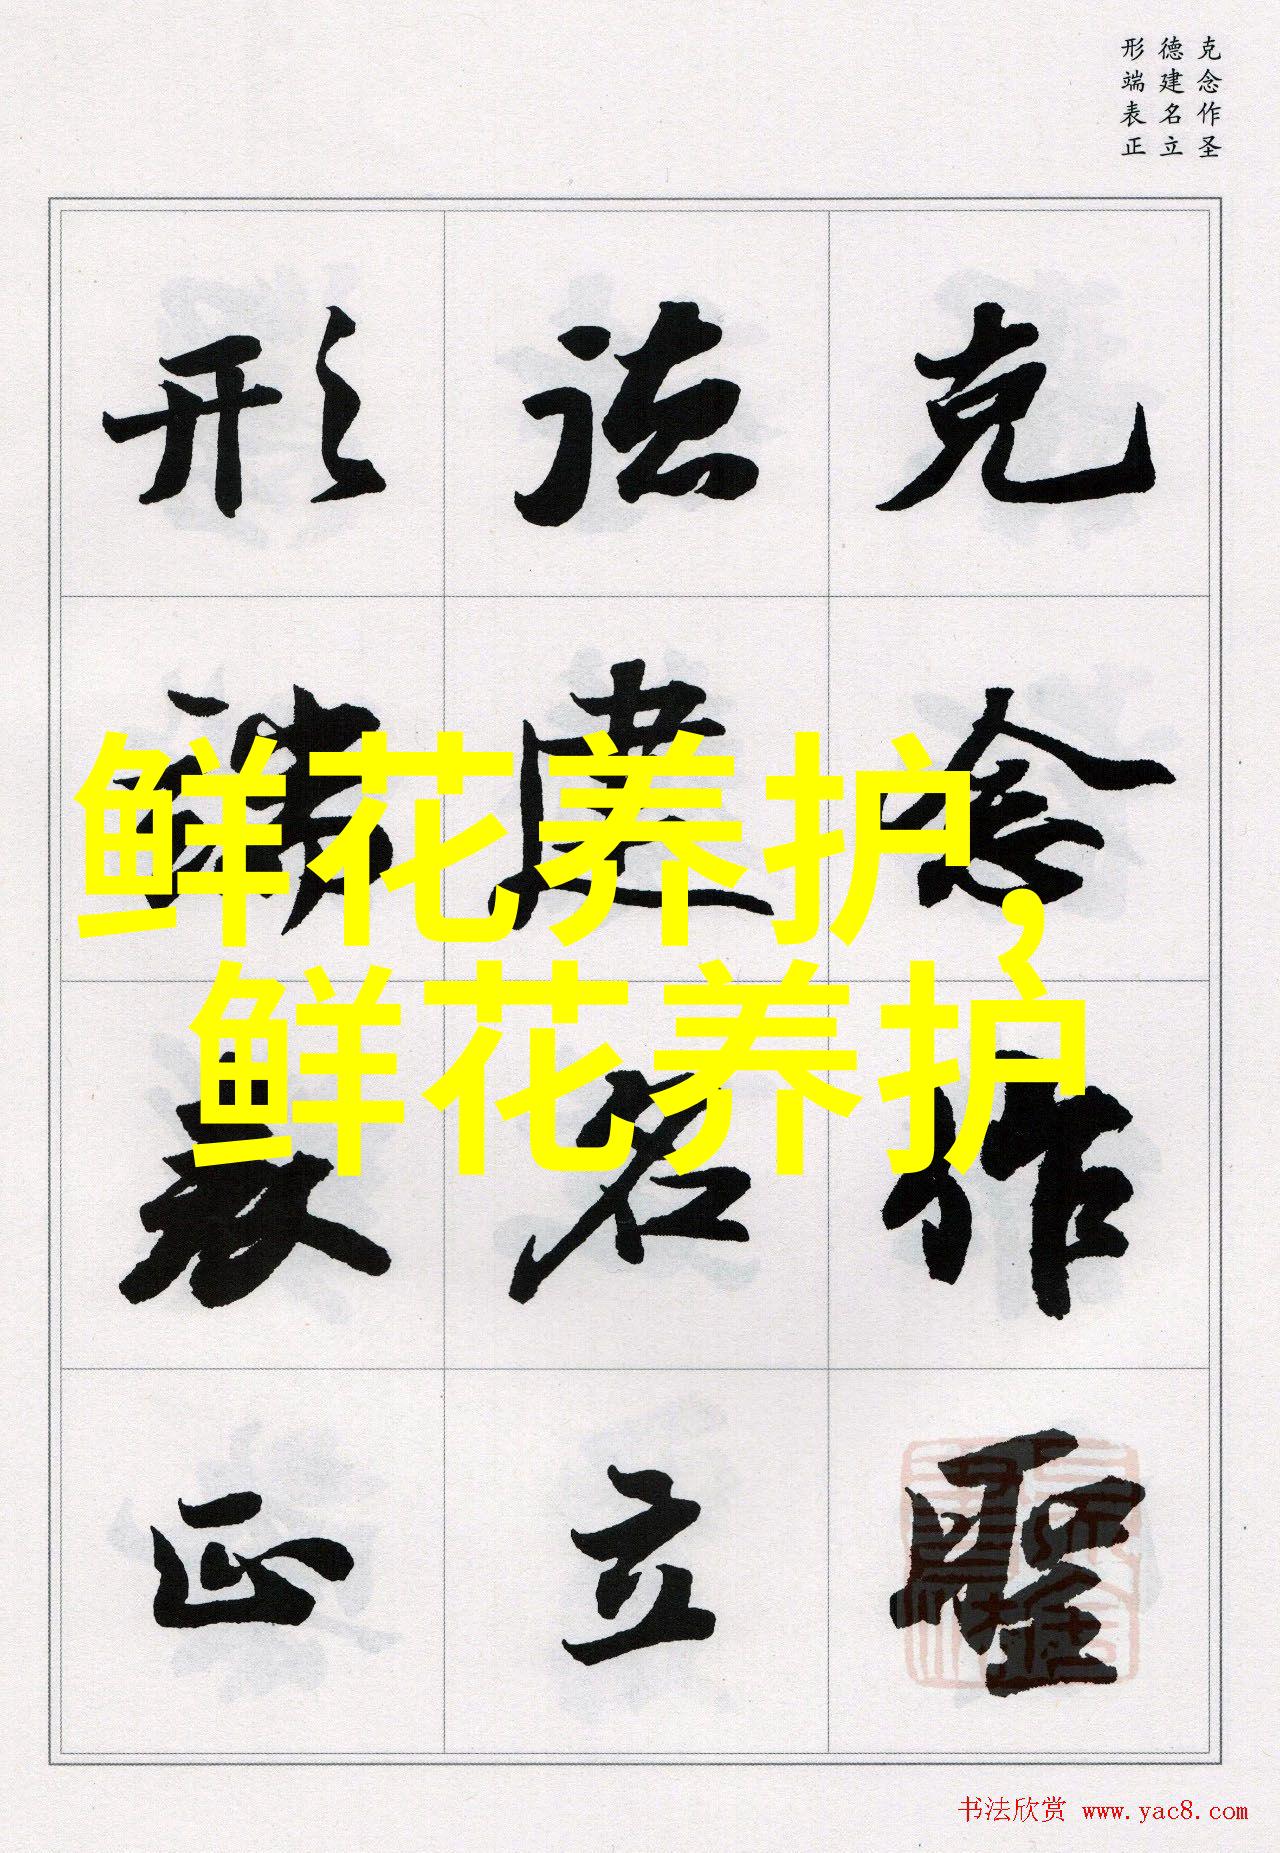 克念作圣
德建名立
形端表正
克念作聖
德建名立
形端表正
鲜花养护,
鲜花养护
书法欣赏 www.yac8.com